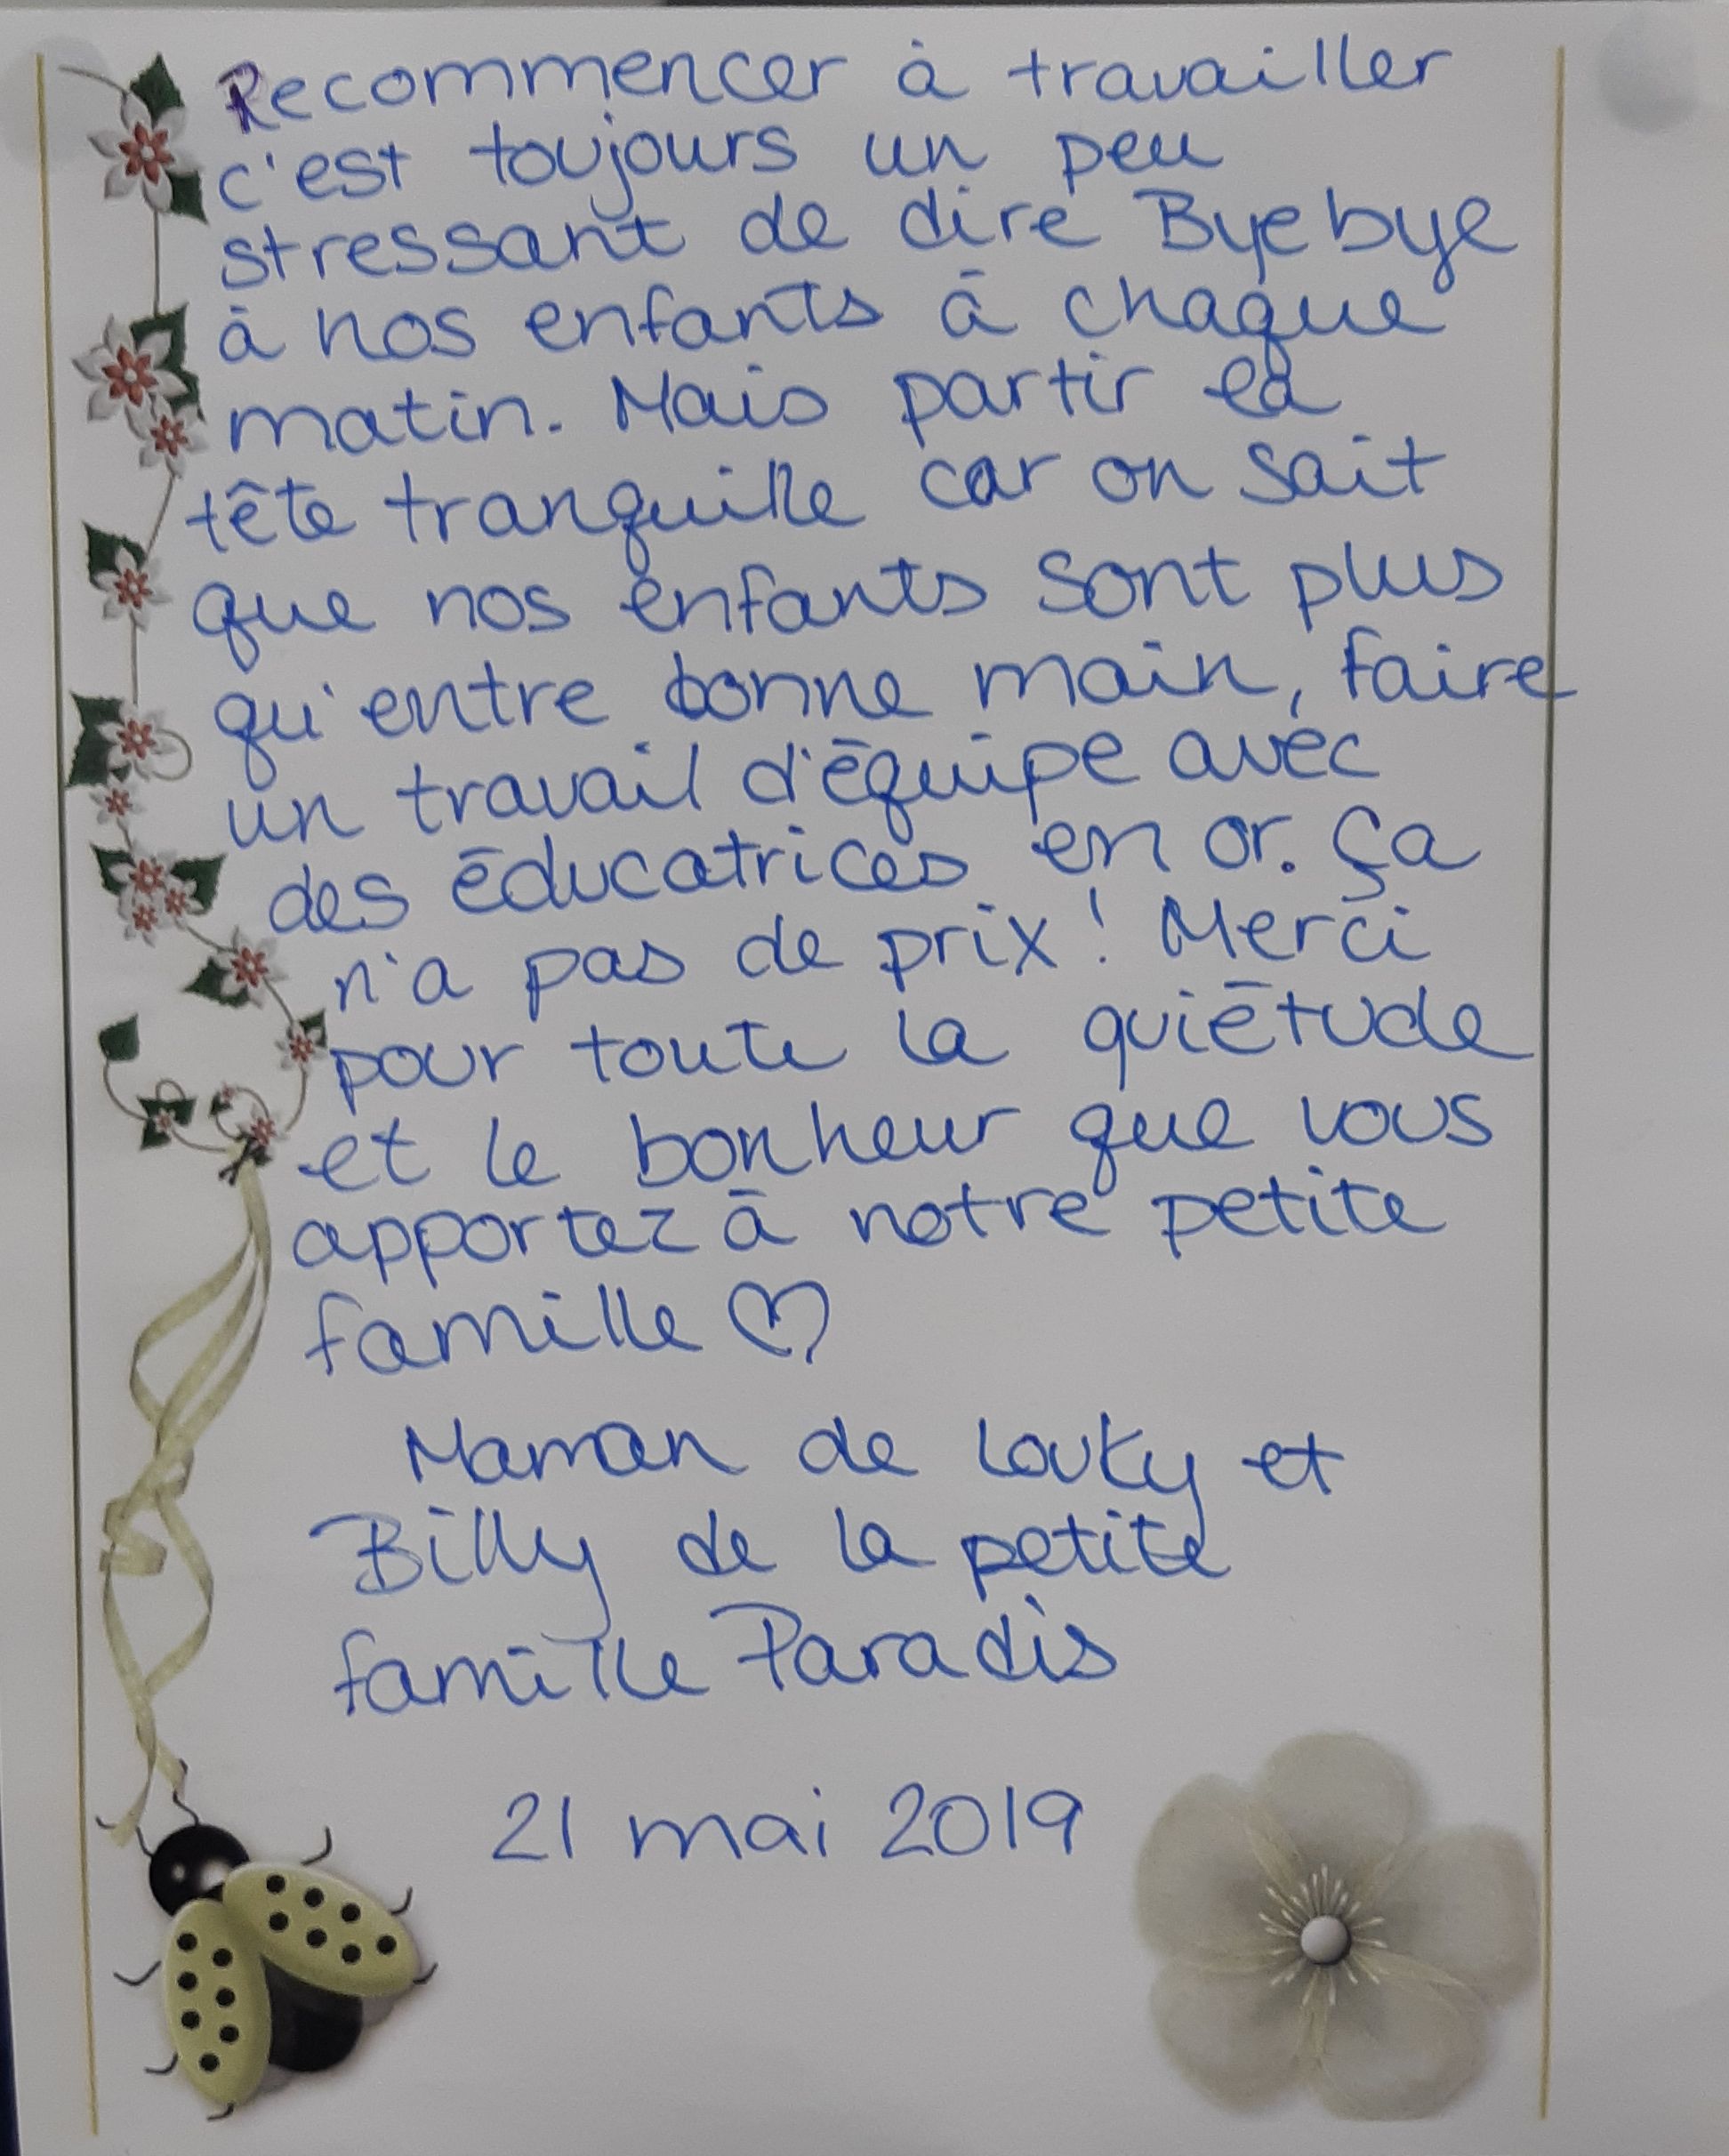 Recommencer à travailler
c'est toujours un peu
stressant de dire Bye bye
à nos enfants à chaque
matin. Mais partir la
tête tranquille car on sait
que nos enfants sont plus
qu'entre bonne main, faire
un travail d'équipe avec
des éducatrices en or. Ça
n'a pas de prix! Merci
pour toute la quiétude
et le bonheur que vous
apportez à notre petite
famille ♡
Maman de Louky et
Billy de la petite
famille Paradis
21 mai 2019